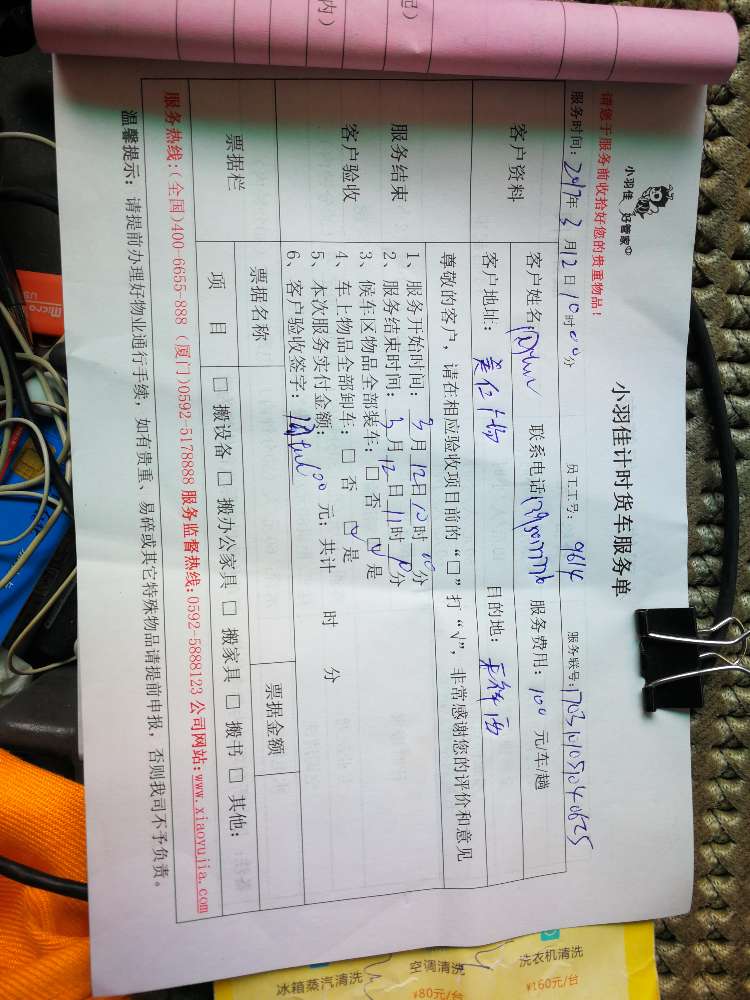 小羽佳 好管家
小羽佳计时货车服务单
请您于服务前收拾好您的贵重物品！
服务时间：2017年3月12日10时00分 员工工号：9614 服务联号：
客户资料
客户姓名 联系电话 服务费用：100元/车/趟
客户地址： 目的地：
尊敬的客户，请在相应验收项目前的“□”打“√”，非常感谢您的评价和意见
服务结束
客户验收
1、服务开始时间：3月12日10时00分
2、服务结束时间：3月12日11时
3、候车区物品全部装车：□ 否 ☑ 是
4、车上物品全部卸车：□ 否 ☑ 是
5、本次服务实付金额：100元；共计 时 分
6、客户验收签字：
票据栏
票据名称 票据金额
项 目 □ 搬设备 □ 搬办公家具 □ 搬家具 □ 搬书 □ 其他：
服务热线：(全国)400-6655-888 (厦门)0592-5178888 服务监督热线：0592-5888123 公司网站：www.xiaoyujia.com
温馨提示：请提前办理好物业通行手续，如有贵重、易碎或其它特殊物品请提前申报，否则我司不予负责。
洗衣机清洗
¥160元/台
空调清洗
¥80元/台
冰箱蒸汽清洗